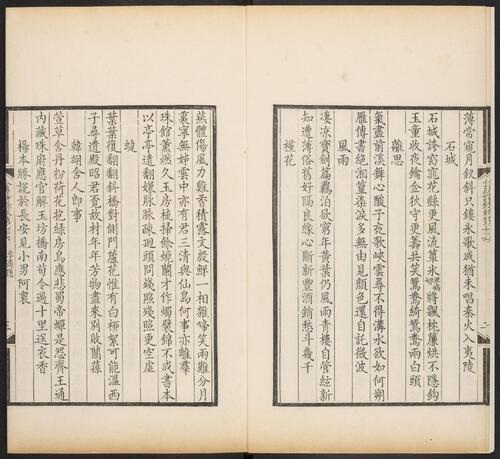 薄常寬月釵斜只鏤冰歌成猶未唱秦火入夷陵
石城
石城誇窈窕花縣更風流簟冰將飄枕簾烘不隱鉤
玉童收夜鑰金狄守更籌共笑鴛鴦綺鴛鴦兩白頭
離思
氣盡前溪舞心酸子夜歌峽雲尋不得溝水欲如何朔
雁傳書絕湘篁染淚多無由見顏色還自託微波
風雨
凄涼寶劍篇羈泊欲窮年黃葉仍風雨青樓自管絃新
知遭薄俗舊好隔良緣心斷新豐酒銷愁斗幾千
槿花
三
燕體傷風力雞香積露文殷鮮一相雜啼笑兩難分月
裏寧無姊雲中亦有君三清與仙島何事亦離羣
珠館薰燃久玉房梳掃餘燒蘭才作燭襞錦不成書本
以亭亭遠翻嫌脈脈疎迴頭問殘照殘照更空虛
蝶
葉葉復翻翻斜橋對側門蘆花惟有白柳絮可能溫西
子尋遺殿昭君覓故村年年芳物盡來別敗蘭蓀
韓翃舍人即事
萱草含丹粉荷花抱綠房鳥應悲蜀帝蟬是怨齊王通
內藏珠府應官解玉坊橋南荀令過十里送衣香
楊本勝說於長安見小男阿袞